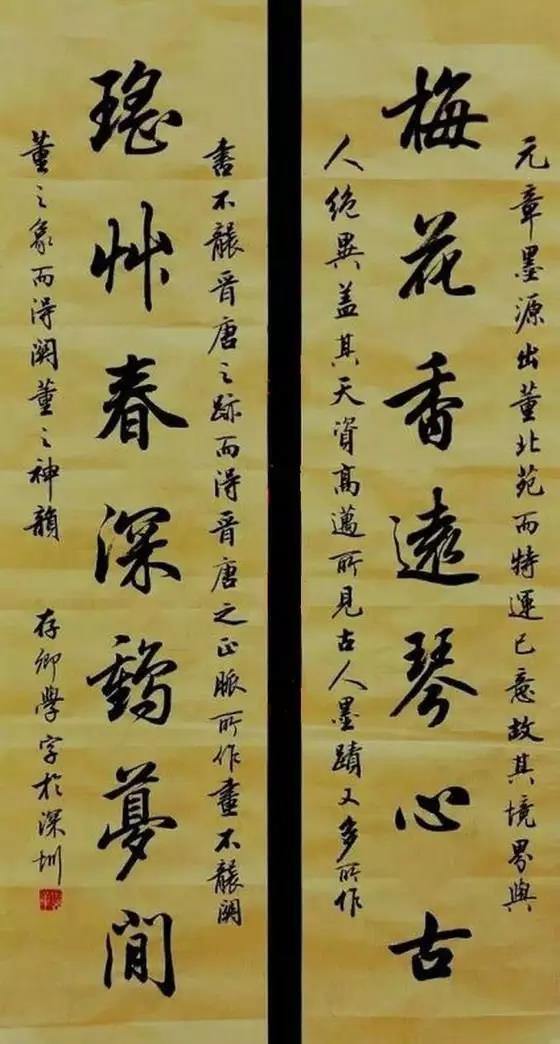 元章墨源出董北苑而特運己意故其境界與
梅花香遠琴心古
人絶異蓋其天資高邁所見古人墨蹟又多所作
書不襲晋唐之跡而得晋唐之正脈所作畫不襲關
瑤艸春深鶴夢閒
董之象而得關董之神韻
存卿學字於深圳